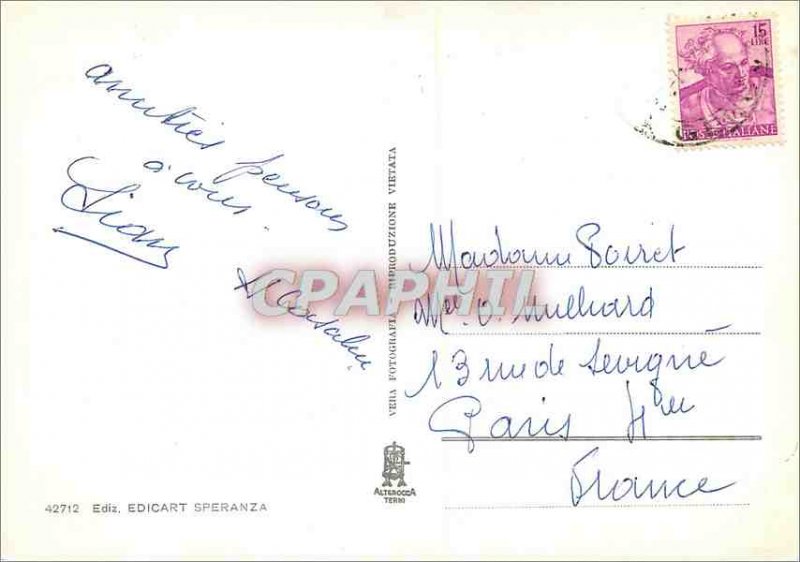 amitiés pensons
à vous.
15
LIRE
POSTE ITALIANE
VERA FOTOGRAFIA - RIPRODUZIONE VIETATA
CPAPHIL
Madame Poiret
13 rue de Sevigné
Paris 4eme
France
ALTEROCCA
TERNI
42712 Ediz. EDICART SPERANZA